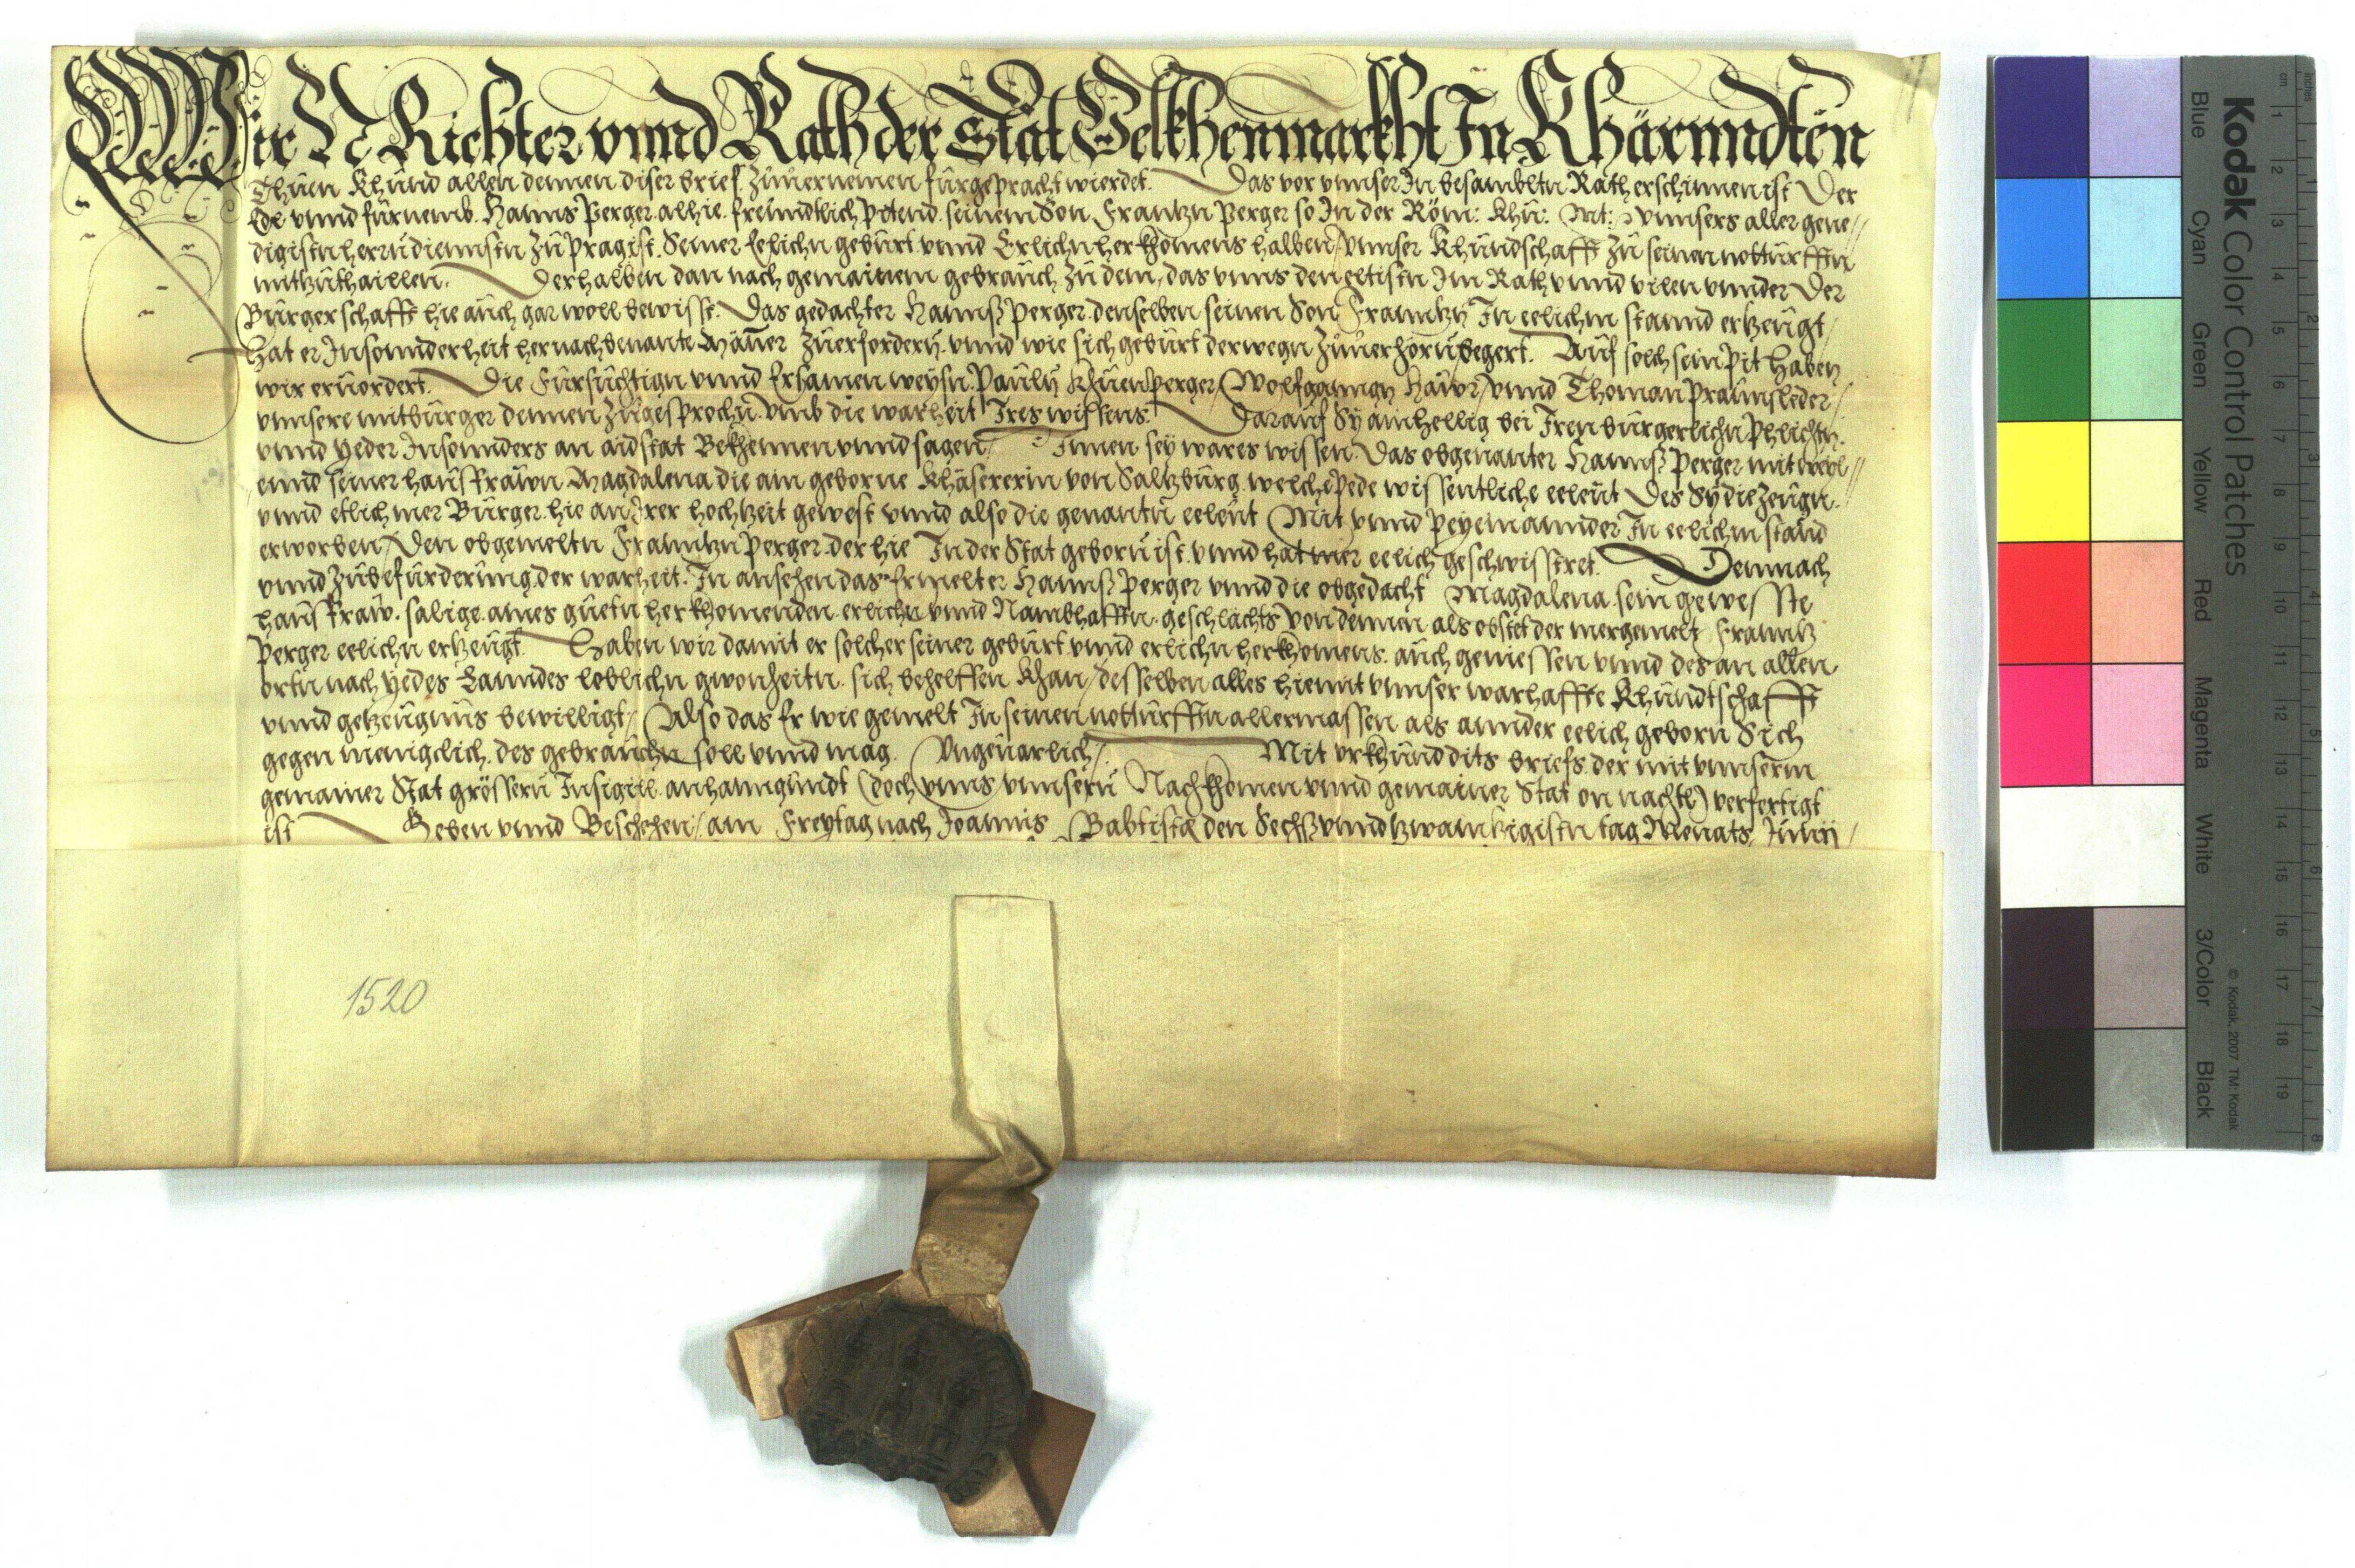 Wir N Richter vnnd Rath der Stat Velkhenmarkht In Khärnndten
Thuen Khund allen dennen diser brief zuuernemen fürgepracht wierdet. Das vor vnnser In besambltn Rath erschinnen ist Der
Edl vnnd fürnemb. Hanns Perger alhie. freundtlich pitend. seinem Son Frantzn Perger so In der Röm: Khü: Mt: vnnsers aller gene//
digistn herrn diennstn zu Prag ist. Seiner eelichn geburt vnnd Erlichn herkhomens halben/ vnnser Khundschafft zu seinen notturfftn
mitzuthaillen. Derhalben dan nach gemainem gebrauch zu dem, das vnns den eltistn Im Rath vnnd vilen vnnder Der
Bürgerschafft hie auch gar woll bewisst. Das gedachter Hannß Perger denselben seinen Son Frantzn In eelichm stannd erzeugt/
hat er Insonnderheit hernachbenante Mäner zuerfordern. vnnd wie sich gebürt derwegn zuuerhörn begert. Auf solch sein Pit haben
wir eruordert. Die Fürsichtign vnnd Ersamen weysn. Pauln Khüenperger/ Wolfganngn Haür/ vnnd Thoman Praunsleder/
vnnsere mitbürger dennen zuegesprochn vmb die warheit Ires wissens. Darauf Sy ainhellig bei Iren bürgerlichn Phlichtn.
vnnd yeder Insonnders an aidstat Bekhennen vnnd sagen/ Innen sey wares wissen. Das obgenanter Hannß Perger mit
ennd seiner hausfrawn Magdalena die ain geborne Khäsererin von Saltzburg welche Pede wissentliche eeleut Des Sy die zeugn.
vnnd etlich mer Bürger hie an Irer hochtzeit gewest vnnd also die genantn eeleut Mit vnnd Peyeinannder In eelichm stand
erworben/ Den obgemeltn Franntzn Perger der hie In der Stat geborn ist vnnd hat mer eelich geschwisstret. Demnach
vnnd zu befürderung der warheit. In ansehen das Ermelter Hannß Perger vnnd die obgedacht Magdalena sein geweste
hausfraw. salige. aines guetn herkhomenden. erlichn vnnd Nambhafftn. geschlächts von dennen als obstet der mergemelt Franntz
Perger eelichn erzeugt. Haben wir damit er solcher seiner geburt vnnd erlichn herkhomens. auch geniessen vnnd des an allen
ortn nach yedes Lanndes löblichn gwonheitn. sich behelffen Khan/ desselben alles hiemit vnnser warhaffte Khundtschafft
vnnd getzeugnus bewilligt/ Also das Er wie gemelt In seinen notturfftn allermassen als annder eelich geborn Sich
gegen menigclich. des gebrauchn soll vnnd mag. Vngeuarlich/ Mit vrkhund dits briefs. der mit vnnserm
gemainer Stat grössern Insigill anhanngundt (doch vnns vnnsern Nachkhomen vnnd gemainer Stat on nachtl) verfertigt
ist Geben vnnd Beschehen/ am Freytag nach Joannis Babtista den Sechßvnndtzwantzigistn tag Monats Junij/
1520
Kodak Color Control Patches
Blue Cyan Green Yellow Red Magenta White 3/Color Black
© Kodak, 2007 TM: Kodak
cm 1 2 3 4 5 6 7 8 9 10 11 12 13 14 15 16 17 18 19
inches 1 2 3 4 5 6 7 8